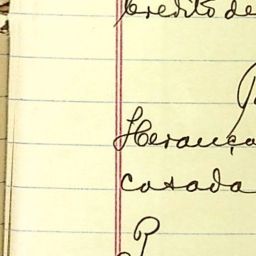 Credito de
Herança
casada